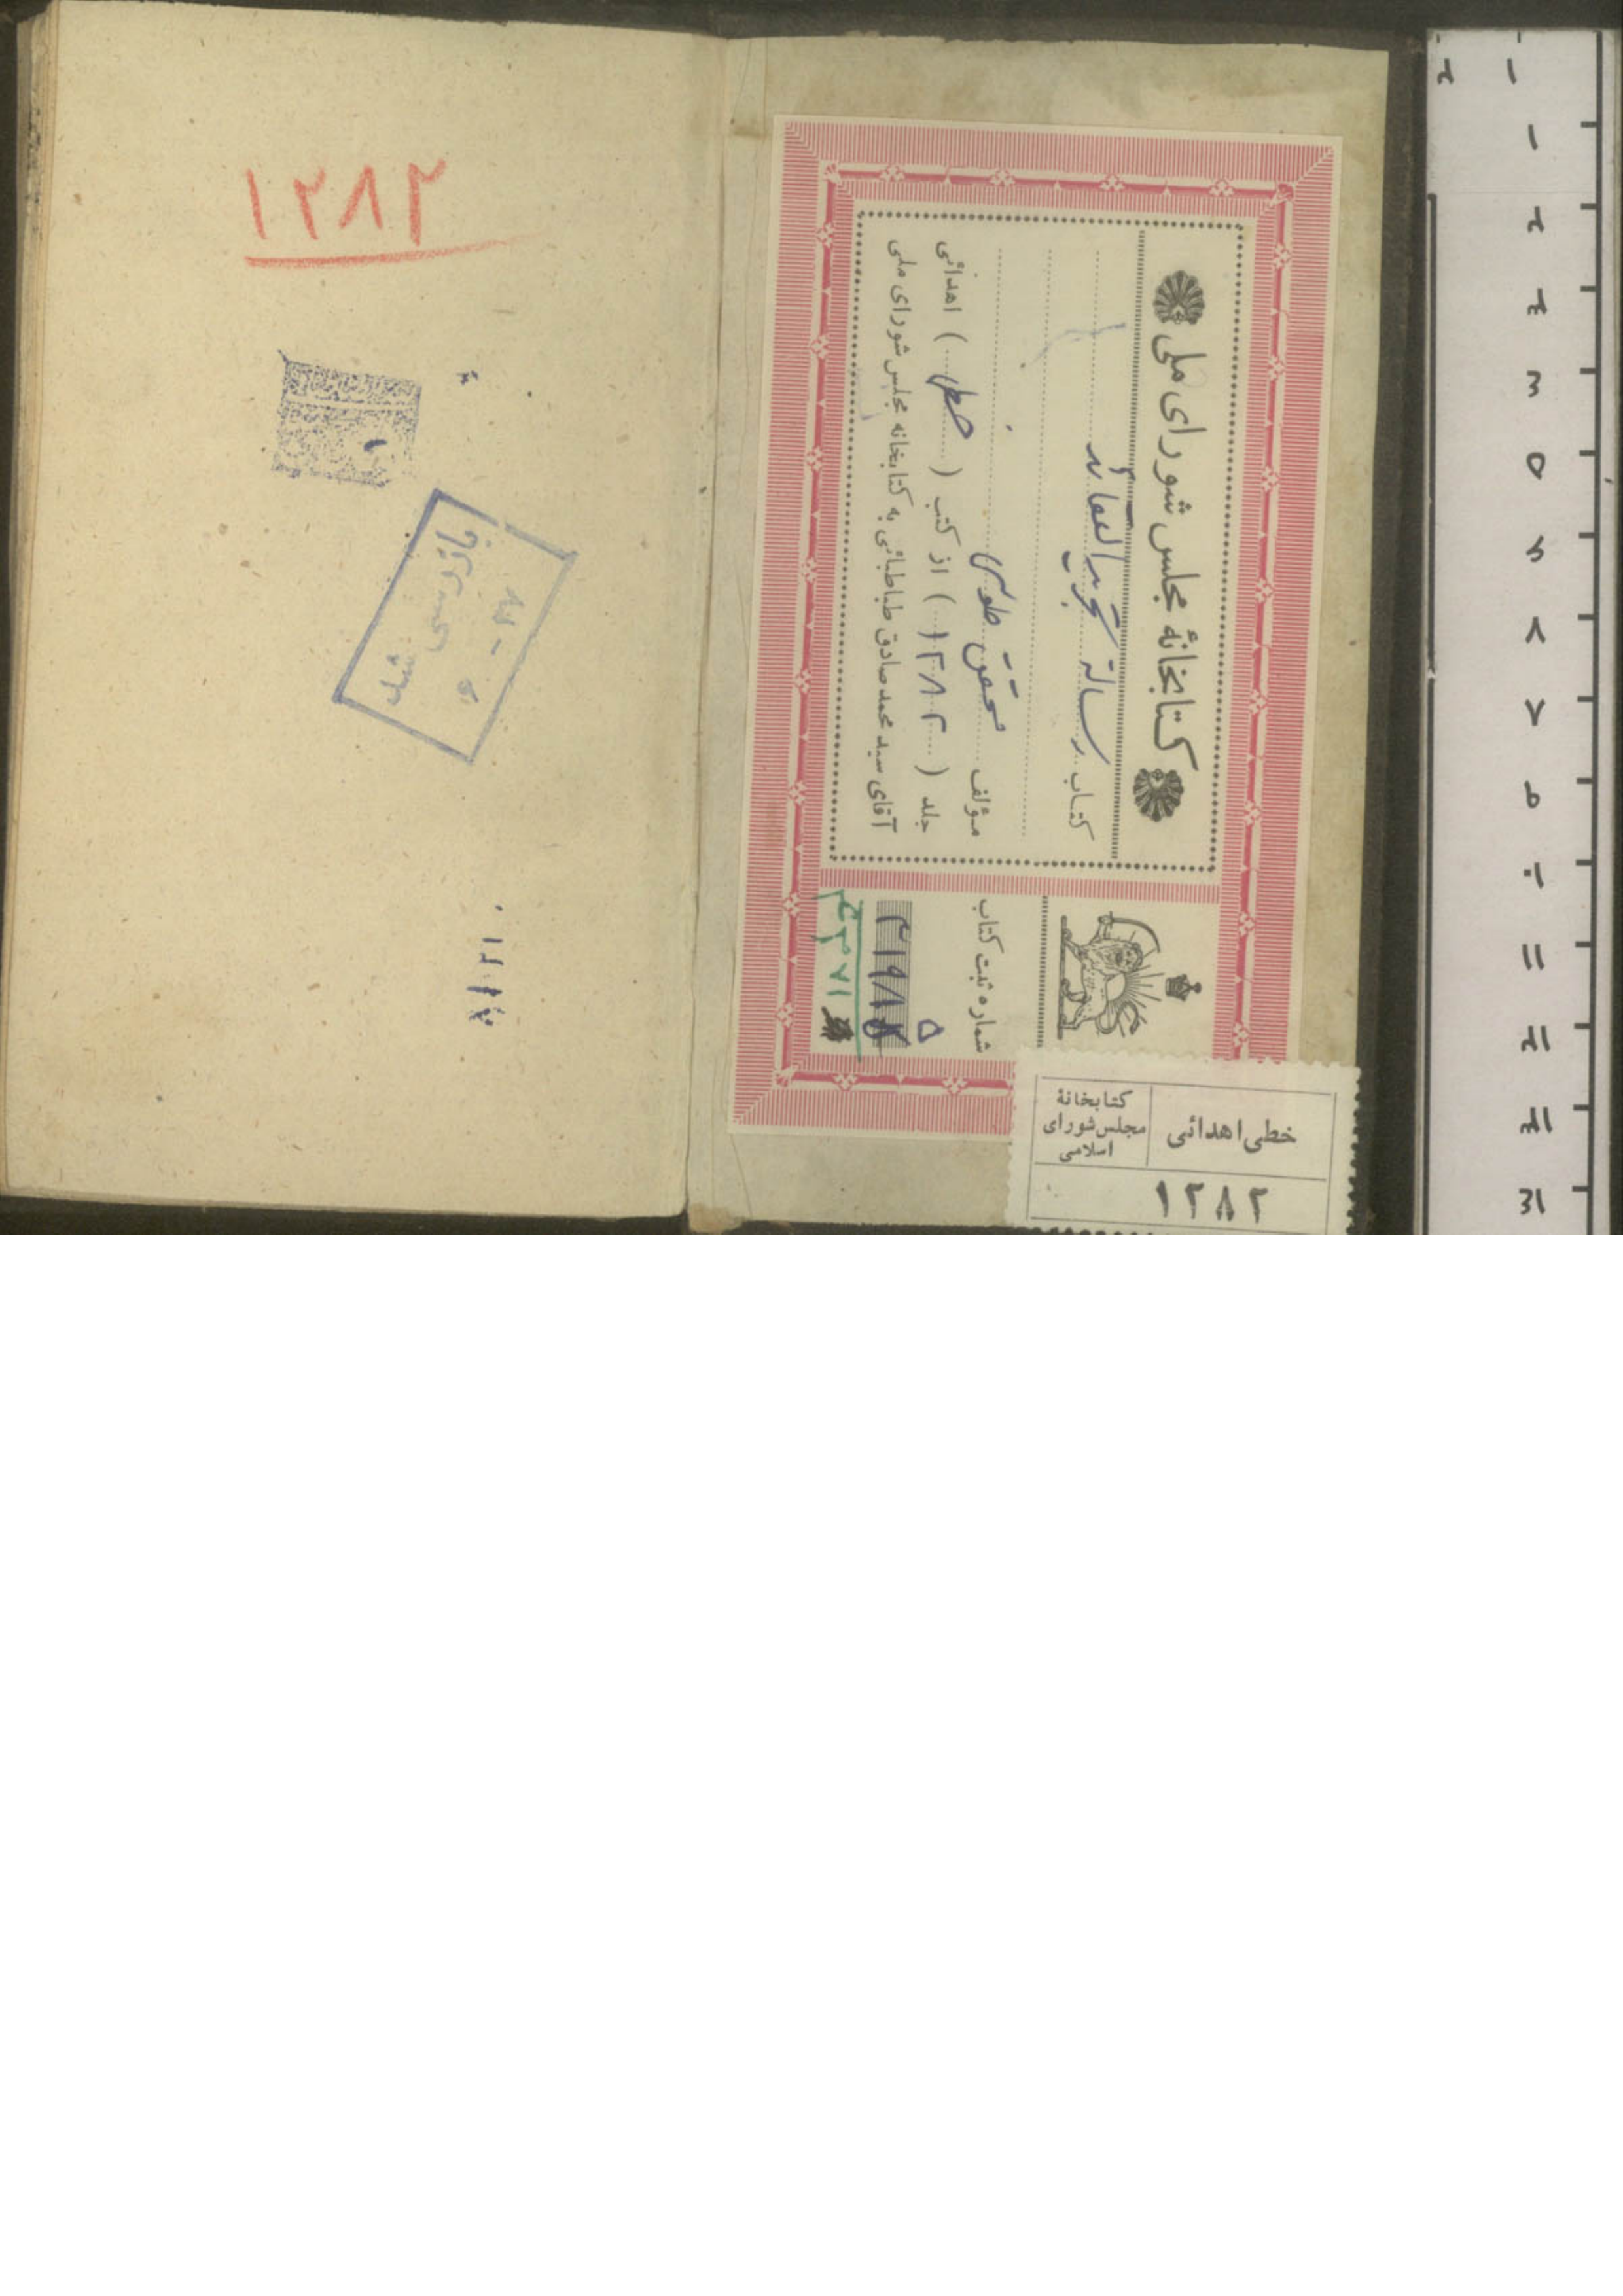 کتابخانهٔ مجلس شورای ملی
کتاب رسالة تجرید العقائد
مؤلف محقق طوسی
جلد (۱۲۸۲) از کتب (خطی) اهدائی
آقای سید محمد صادق طباطبائی به کتابخانه مجلس شورای ملی
شماره ثبت کتاب
۵
خطی اهدائی
کتابخانهٔ
مجلس شورای
اسلامی
۱۲۸۲
۱۲۸۲
بازرسی شد
۳۷ - ۶